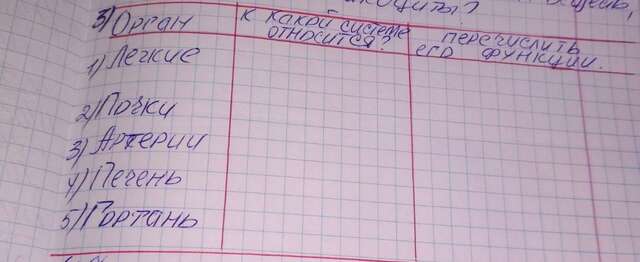 3) Орган к какой системе относится? перечислить его функции.
1) Легкие
2) Почки
3) Артерии
4) Печень
5) Гортань